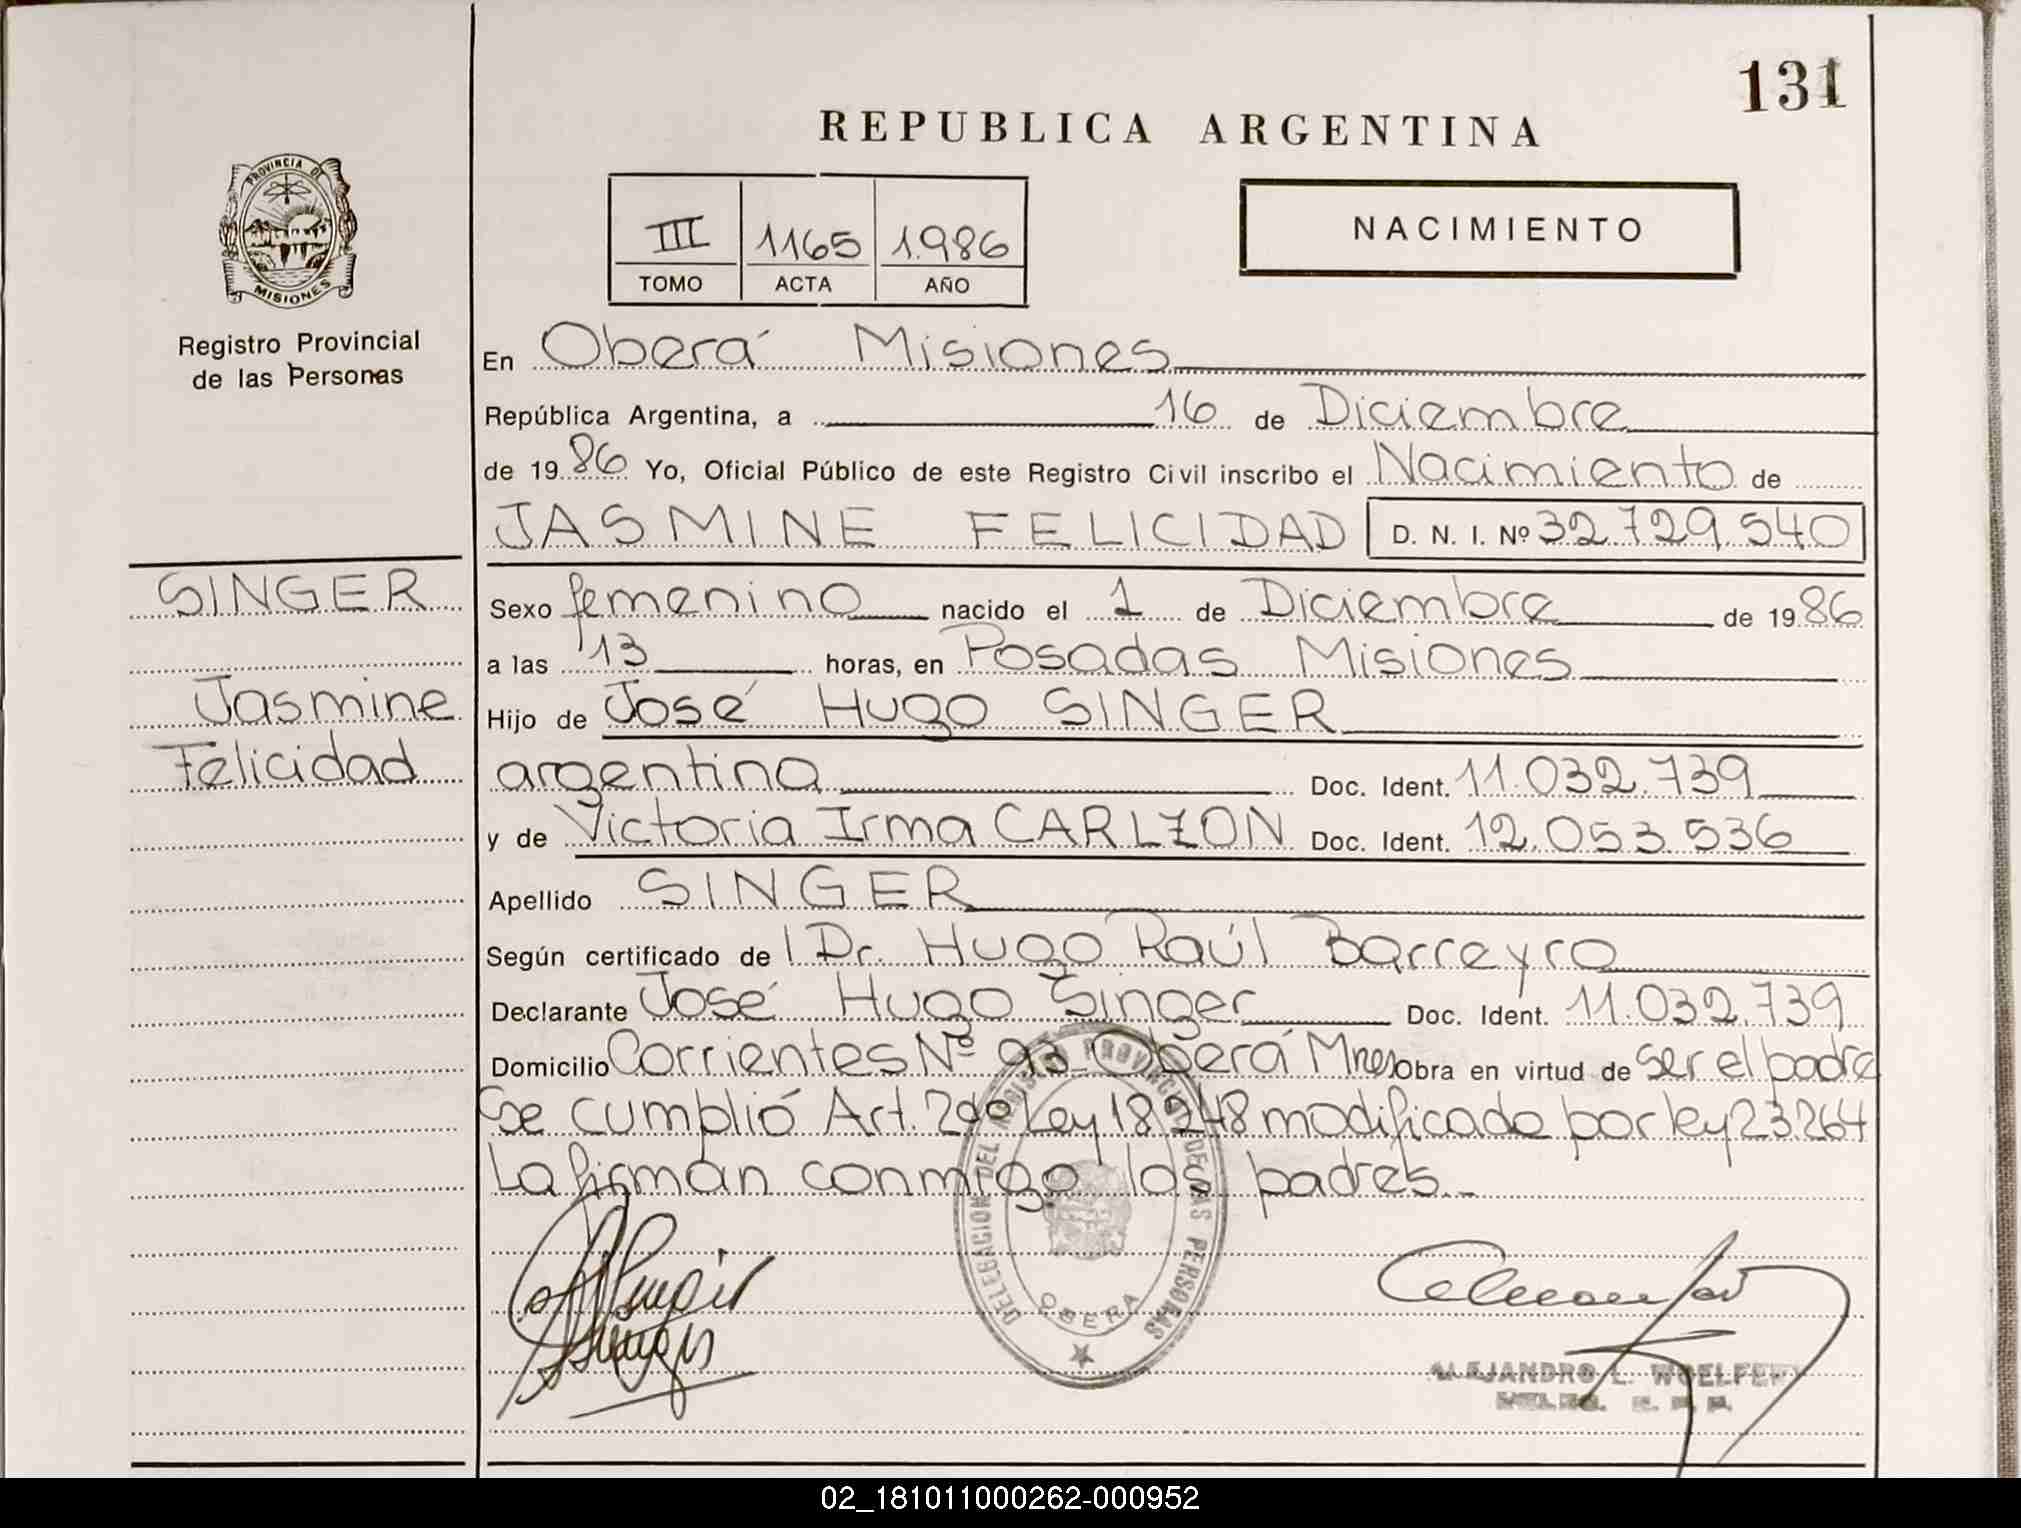 131
REPUBLICA ARGENTINA
PROVINCIA DE
MISIONES
Registro Provincial
de las Personas
III 1165 1.986
TOMO ACTA AÑO
NACIMIENTO
En Oberá Misiones
República Argentina, a 16 de Diciembre
de 19 86 Yo, Oficial Público de este Registro Civil inscribo el Nacimiento de
JASMINE FELICIDAD D. N. I. Nº 32.729.540
SINGER
Jasmine
Felicidad
Sexo femenino nacido el 1 de Diciembre de 19 86
a las 13 horas, en Posadas Misiones
Hijo de José Hugo SINGER
argentina Doc. Ident. 11.032.739
y de Victoria Irma CARLZON Doc. Ident. 12.053.536
Apellido SINGER
Según certificado de l Dr. Hugo Raúl Barreyro
Declarante José Hugo Singer Doc. Ident. 11.032.739
Domicilio Corrientes Nº 93 Oberá Mnes Obra en virtud de ser el padre
Se cumplió Art. 2do Ley 18248 modificado por ley 23264
La firman conmigo los padres.-
DELEGACION DEL REGISTRO PROVINCIAL DE LAS PERSONAS
OBERA
ALEJANDRO L. WOELFERT
02_181011000262-000952